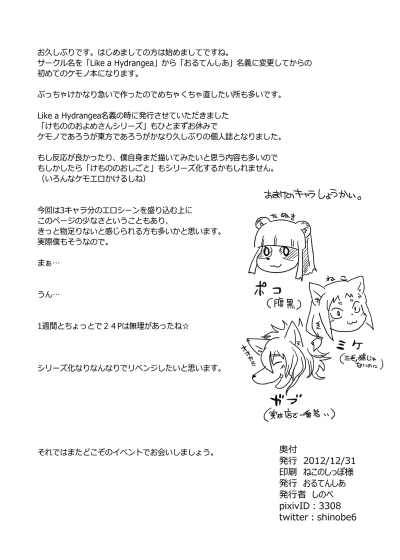 お久しぶりです。はじめましての方は始めましてですね。
サークル名を「Like a Hydrangea」から「おるてんしあ」名義に変更してからの
初めてのケモノ本になります。
ぶっちゃけかなり急いで作ったのでめちゃくちゃ直したい所も多いです。
Like a Hydrangea名義の時に発行させていただきました
「けもののおよめさんシリーズ」もひとまずお休みで
ケモノであろうが東方であろうがかなり久しぶりの個人誌となりました。
もし反応が良かったり、僕自身まだ描いてみたいと思う内容も多いので
もしかしたら「けもののおしごと」もシリーズ化するかもしれません。
（いろんなケモエロかけるしね）
今回は3キャラ分のエロシーンを盛り込む上に
このページの少なさということもあり、
きっと物足りないと感じられる方も多いかと思います。
実際僕もそうなので。
まぁ…
うん…
1週間とちょっとで２４Pは無理があったね☆
シリーズ化なりなんなりでリベンジしたいと思います。
それではまたどこぞのイベントでお会いしましょう。
おまけのキャラしょうかい。
たぬき
ポコ
(腹黒)
ねこ
ミケ
オオカミ!!!
ガブ
(実は店で一番若い)
奥付
発行 2012/12/31
印刷 ねこのしっぽ様
発行 おるてんしあ
発行者 しのべ
pixivID：3308
twitter：shinobe6